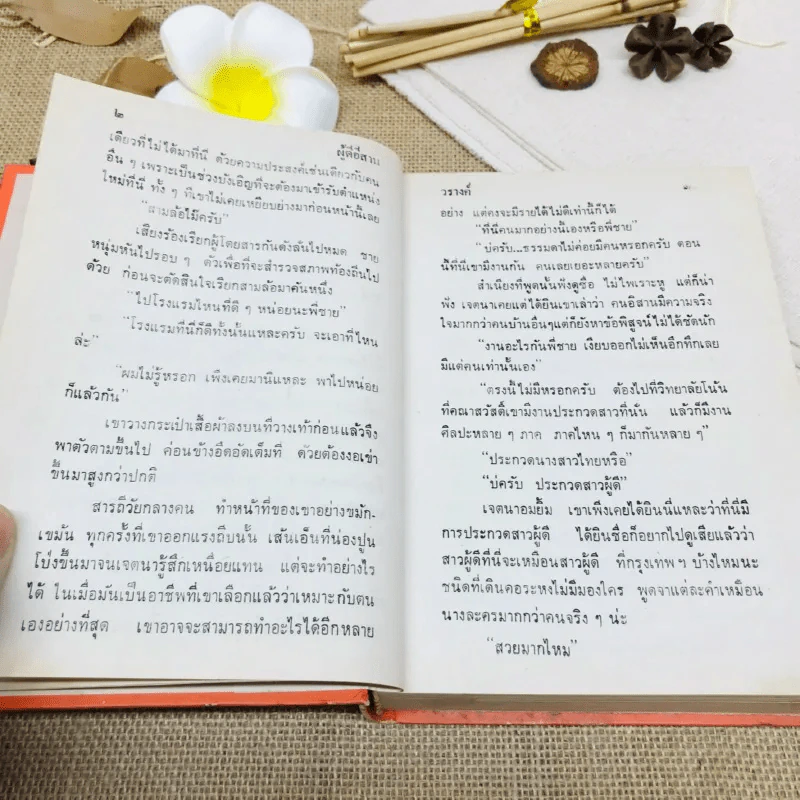 ๒
ผู้ดีอีสาน
เดียวที่ไม่ได้มาที่นี่ ด้วยความประสงค์เช่นเดียวกับคน
อื่น ๆ เพราะเป็นช่วงบังเอิญที่จะต้องมาเข้ารับตำแหน่ง
ใหม่ที่นี่ ทั้ง ๆ ที่เขาไม่เคยเหยียบย่างมาก่อนหน้านี้เลย
“สามล้อไม๊ครับ”
เสียงร้องเรียกผู้โดยสารกันดังลั่นไปหมด ชาย
หนุ่มหันไปรอบ ๆ ตัวเพื่อที่จะสำรวจสภาพท้องถิ่นไป
ด้วย ก่อนจะตัดสินใจเรียกสามล้อมาคันหนึ่ง
“ไปโรงแรมไหนที่ดี ๆ หน่อยนะพี่ชาย”
“โรงแรมที่นี่ก็ดีทั้งนั้นแหละครับ จะเอาที่ไหน
ล่ะ”
“ผมไม่รู้หรอก เพิ่งเคยมานี่แหละ พาไปหน่อย
ก็แล้วกัน”
เขาวางกระเป๋าเสื้อผ้าลงบนที่วางเท้าก่อนแล้วจึง
พาตัวตามขึ้นไป ค่อนข้างอึดอัดเต็มที่ ด้วยต้องงอเข่า
ขึ้นมาสูงกว่าปกติ
สารถีวัยกลางคน ทำหน้าที่ของเขาอย่างขมัก-
เขมัน ทุกครั้งที่เขาออกแรงถีบนั้น เส้นเอ็นที่น่องปูน
โปงขึ้นมาจนเจตนารู้สึกเหนื่อยแทน แต่จะทำอย่างไร
ได้ ในเมื่อมันเป็นอาชีพที่เขาเลือกแล้วว่าเหมาะกับตน
เองอย่างที่สุด เขาอาจจะสามารถทำอะไรได้อีกหลาย
วรางค์
อย่าง แต่คงจะมีรายได้ไม่ดีเท่านี้ก็ได้
“ที่นี่คนมากอย่างนี้เองหรือพี่ชาย”
“บ่ครับ...ธรรมดาไม่ค่อยมีคนหรอกครับ ตอน
นี้ที่นี่เขามีงานกัน คนเลยเยอะหลายครับ”
สำเนียงที่พูดนั้นฟังดูซื่อ ไม่ไพเราะหู แต่ก็น่า
ฟัง เจตนาเคยแต่ได้ยินเขาเล่าว่า คนอิสานมีความจริง
ใจมากกว่าคนบ้านอื่นๆแต่ก็ยังหาข้อพิสูจน์ไม่ได้ชัดนัก
“งานอะไรกันพี่ชาย เงียบออกไม่เห็นอึกทึกเลย
มีแต่คนเท่านั้นเอง”
“ตรงนี้ไม่มีหรอกครับ ต้องไปที่วิทยาลัยโน้น
ที่คณาสวัสดิ์เขามีงานประกวดสาวที่นั่น แล้วก็มีงาน
ศิลปะหลาย ๆ ภาค ภาคไหน ๆ ก็มากันหลาย ๆ”
“ประกวดนางสาวไทยหรือ”
“บ่ครับ ประกวดสาวผู้ดี”
เจตนาอมยิ้ม เขาเพิ่งเคยได้ยินนี่แหละว่าที่นี่มี
การประกวดสาวผู้ดี ได้ยินชื่อก็อยากไปดูเสียแล้วว่า
สาวผู้ดีที่นี่จะเหมือนสาวผู้ดี ที่กรุงเทพฯ บ้างไหมนะ
ชนิดที่เดินคอระหงไม่มีมองใคร พูดจาแต่ละคำเหมือน
นางละครมากกว่าคนจริง ๆ น่ะ
“สวยมากไหม”